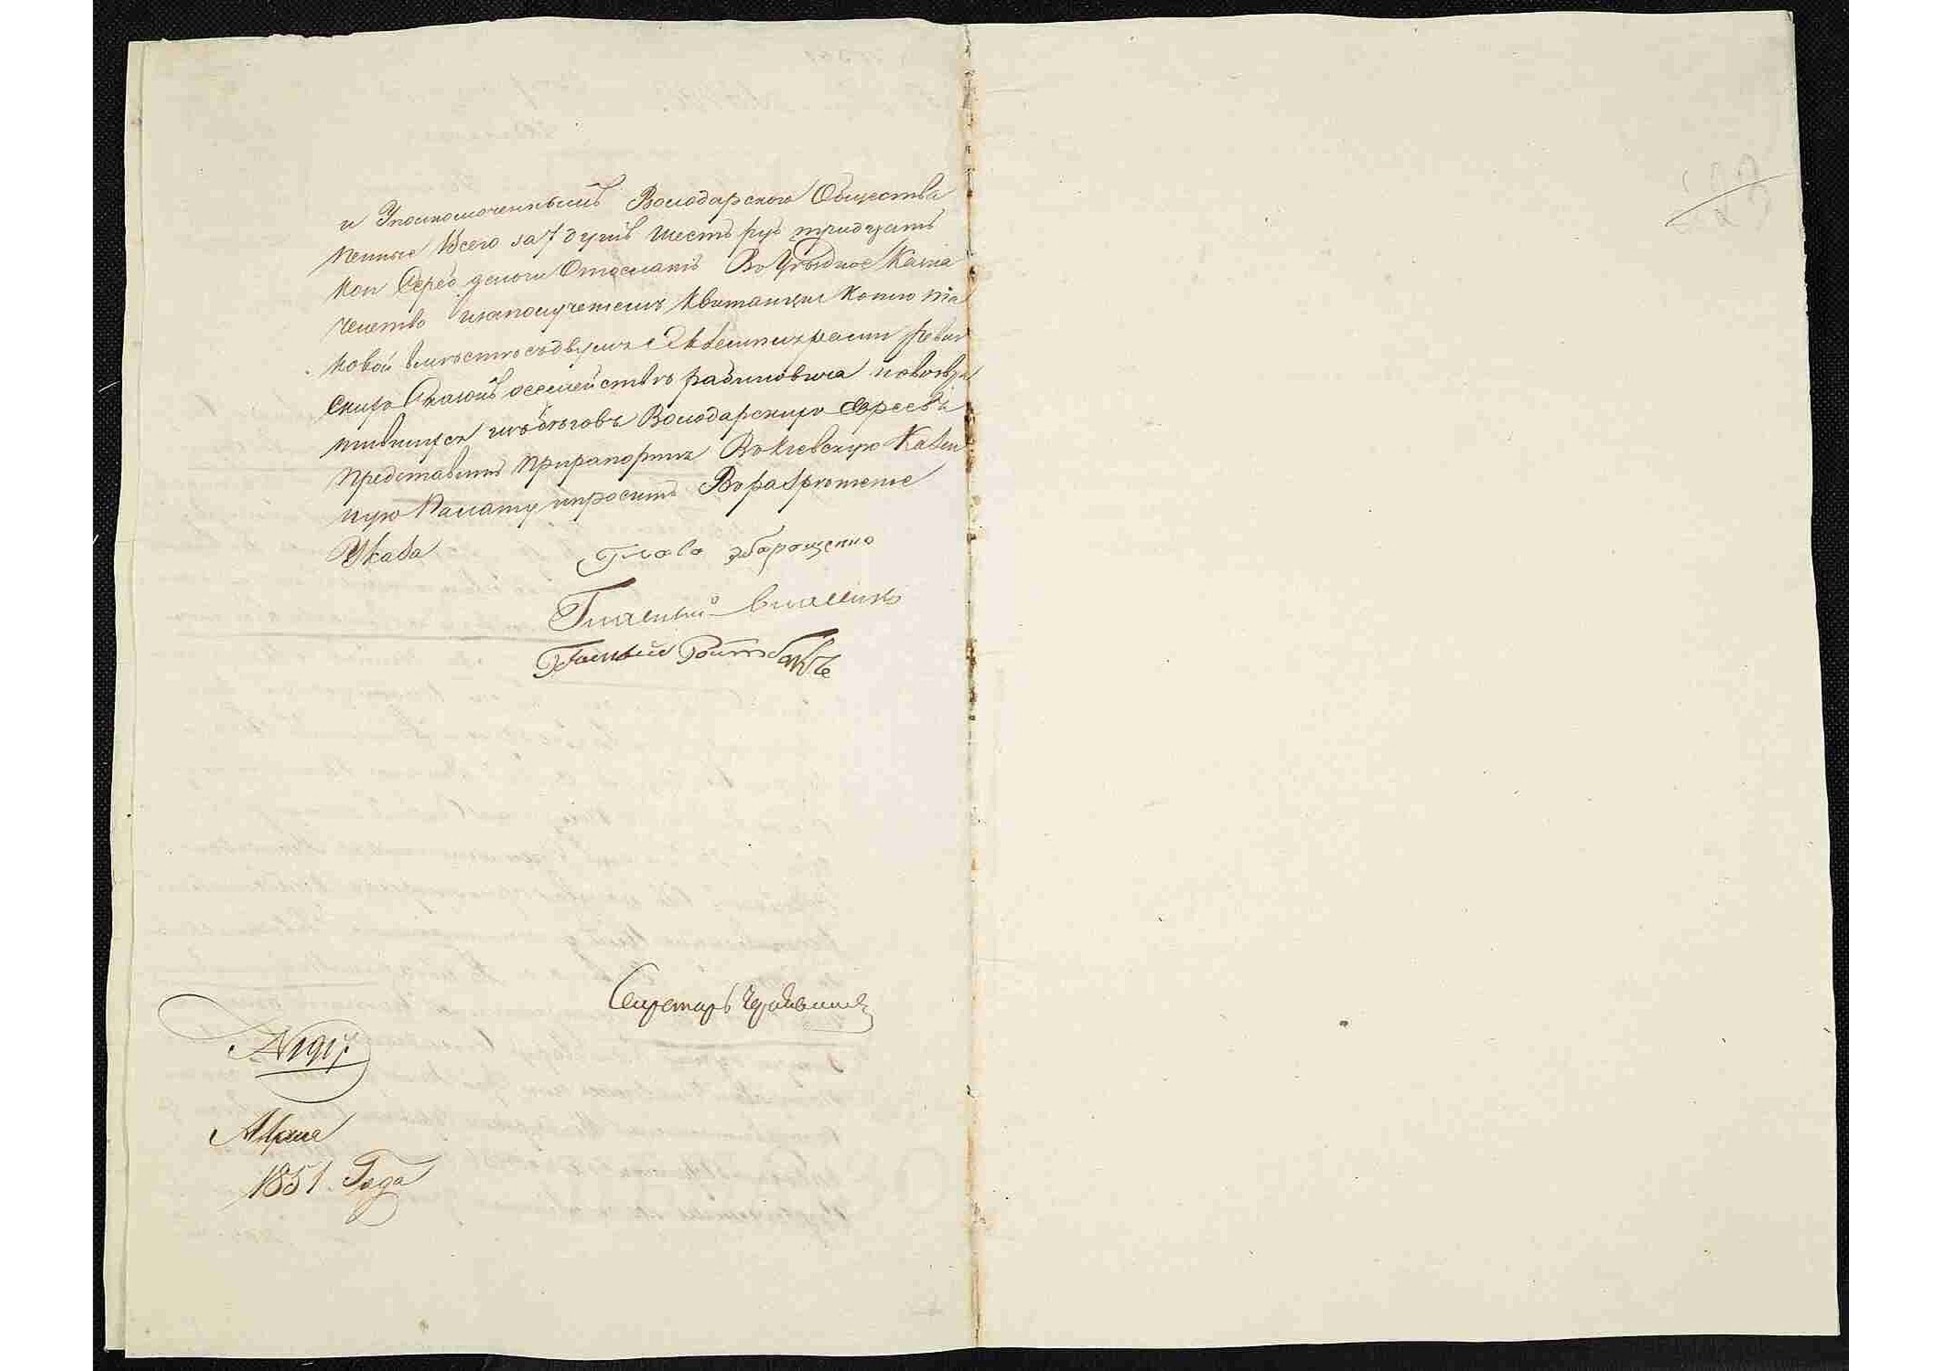 и Уполномоченнымъ Володарского Общества
пенные всего за 7 душъ шесть руб тридцать
коп Сереб деньги Отослать Во Уездное Казна
чейство изаполучениемъ Квитанции копию та
ковой вместе съ двумя Экземплярами ревиз
скихъ Сказокъ осемействе рабиновича
Володарскихъ евреевъ
представить Прирапорте Во Киевскую Казен
ную Палату ипросить Во разрешение
Указа
Глава
Гласный
Гласный
Секретарь
N 1917
Апреля
1851 Года